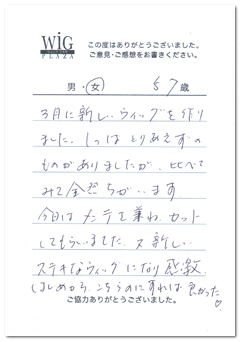 WIG
PLAZA
この度はありがとうございました。
ご意見・ご感想をお書きください。
男・女 57歳
3月に新しいウィッグを作り
ました。1つはとりあえずの
ものがありましたが、比べて
みて全然ちがいます
今日はメンテを兼ねカット
してもらいました。又新しい
ステキなウィッグになり感激、
はじめから、こちらのにすれば良かった♡
ご協力ありがとうございました。